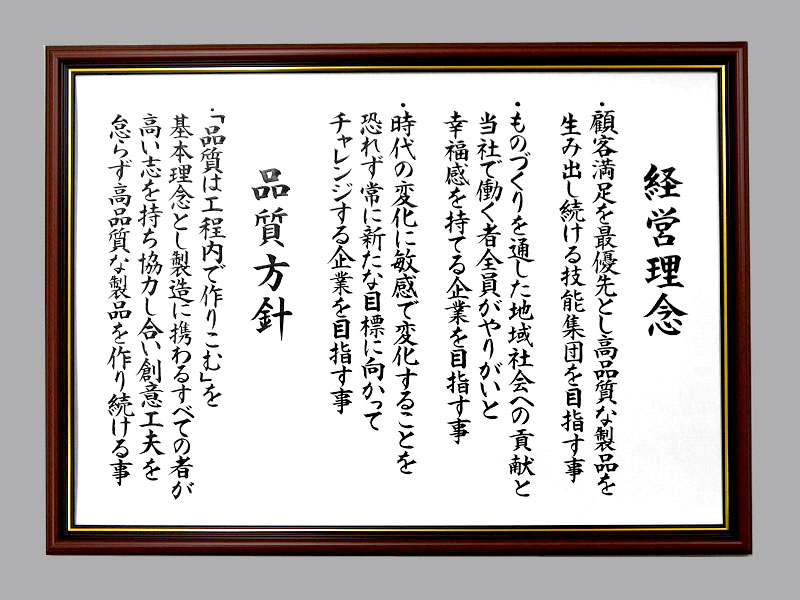 経営理念
・顧客満足を最優先とし高品質な製品を
生み出し続ける技能集団を目指す事
・ものづくりを通した地域社会への貢献と
当社で働く者全員がやりがいと
幸福感を持てる企業を目指す事
・時代の変化に敏感で変化することを
恐れず常に新たな目標に向かって
チャレンジする企業を目指す事
品質方針
・「品質は工程内で作りこむ」を
基本理念とし製造に携わるすべての者が
高い志を持ち協力し合い創意工夫を
怠らず高品質な製品を作り続ける事